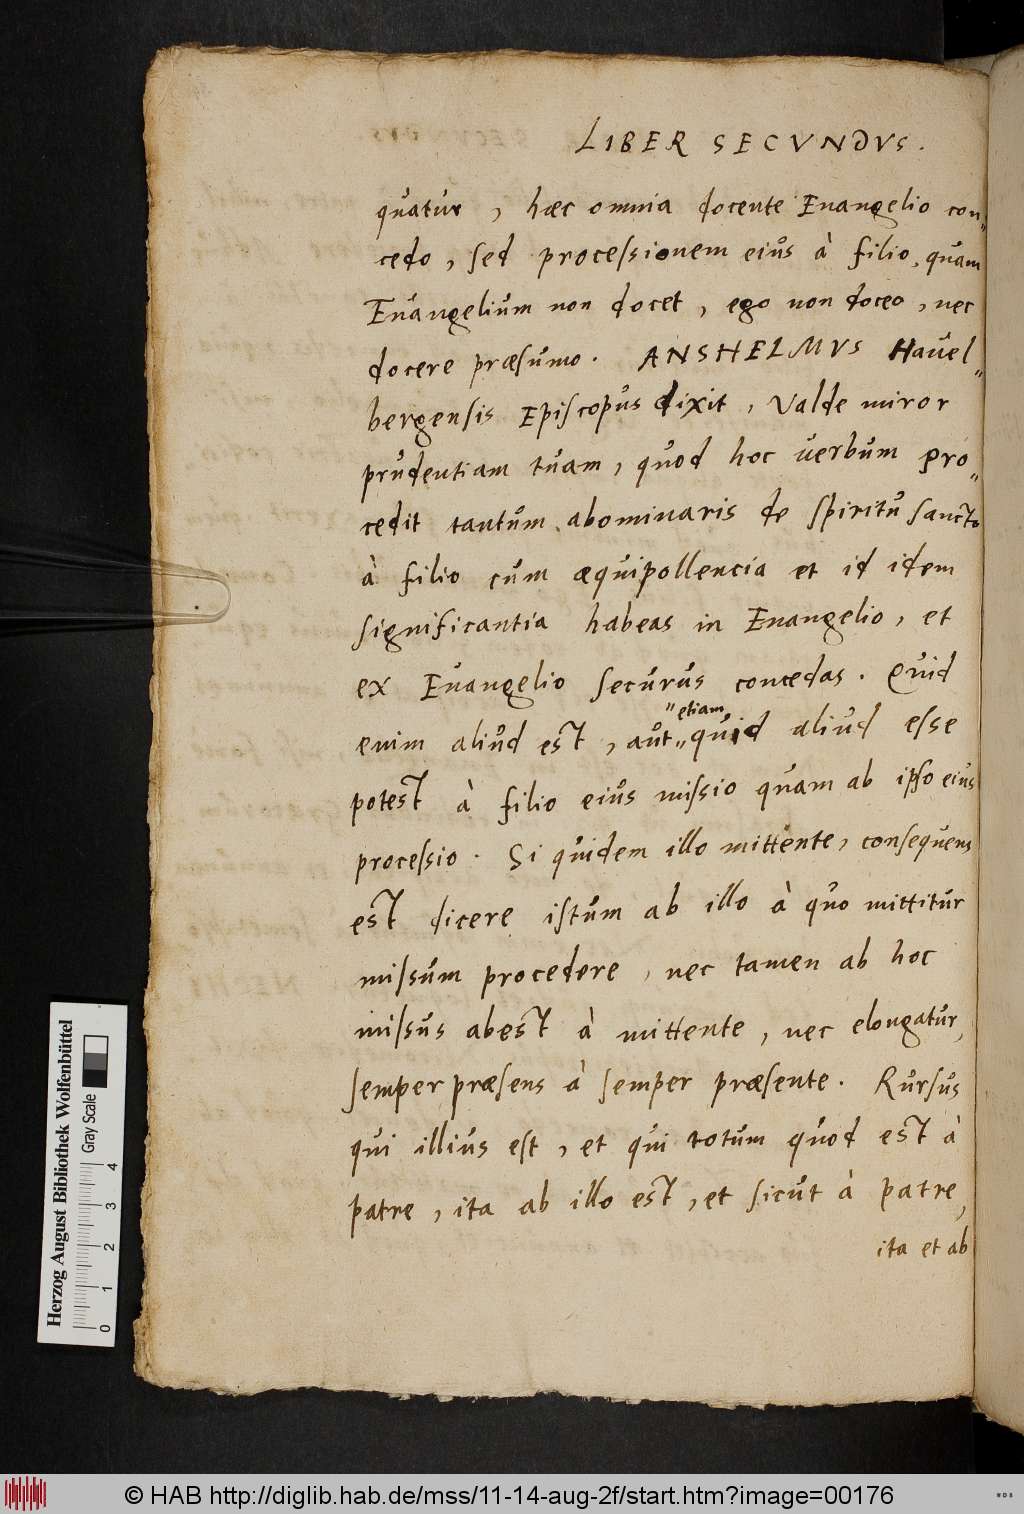 LIBER SECVNDVS.
quatur, hæc omnia docente Euangelio con„
cedo, sed processionem eius à filio, quam
Euangelium non docet, ego non doceo, nec
docere præsumo. ANSHELMVS Hauel„
bergensis Episcopus dixit, Valde miror
prudentiam tuam, quod hoc uerbum pro„
cedit tantum abominaris de spiritu sancto
à filio cum æquipollencia et id idem
significantia habeas in Euangelio, et
ex Euangelio securus concedas. Quid
„etiam
enim aliud est, aut „quid aliud esse
potest à filio eius missio quam ab ipso eius
processio. Si quidem illo mittente, consequens
est dicere istum ab illo à quo mittitur
missum procedere, nec tamen ab hoc
missus abest à mittente, nec elongatur,
semper præsens à semper præsente. Rursus
qui illius est, et qui totum quod est à
patre, ita ab illo est, et sicut à patre,
ita et ab
Herzog August Bibliothek Wolfenbüttel
Gray Scale
0 1 2 3 4
© HAB http://diglib.hab.de/mss/11-14-aug-2f/start.htm?image=00176